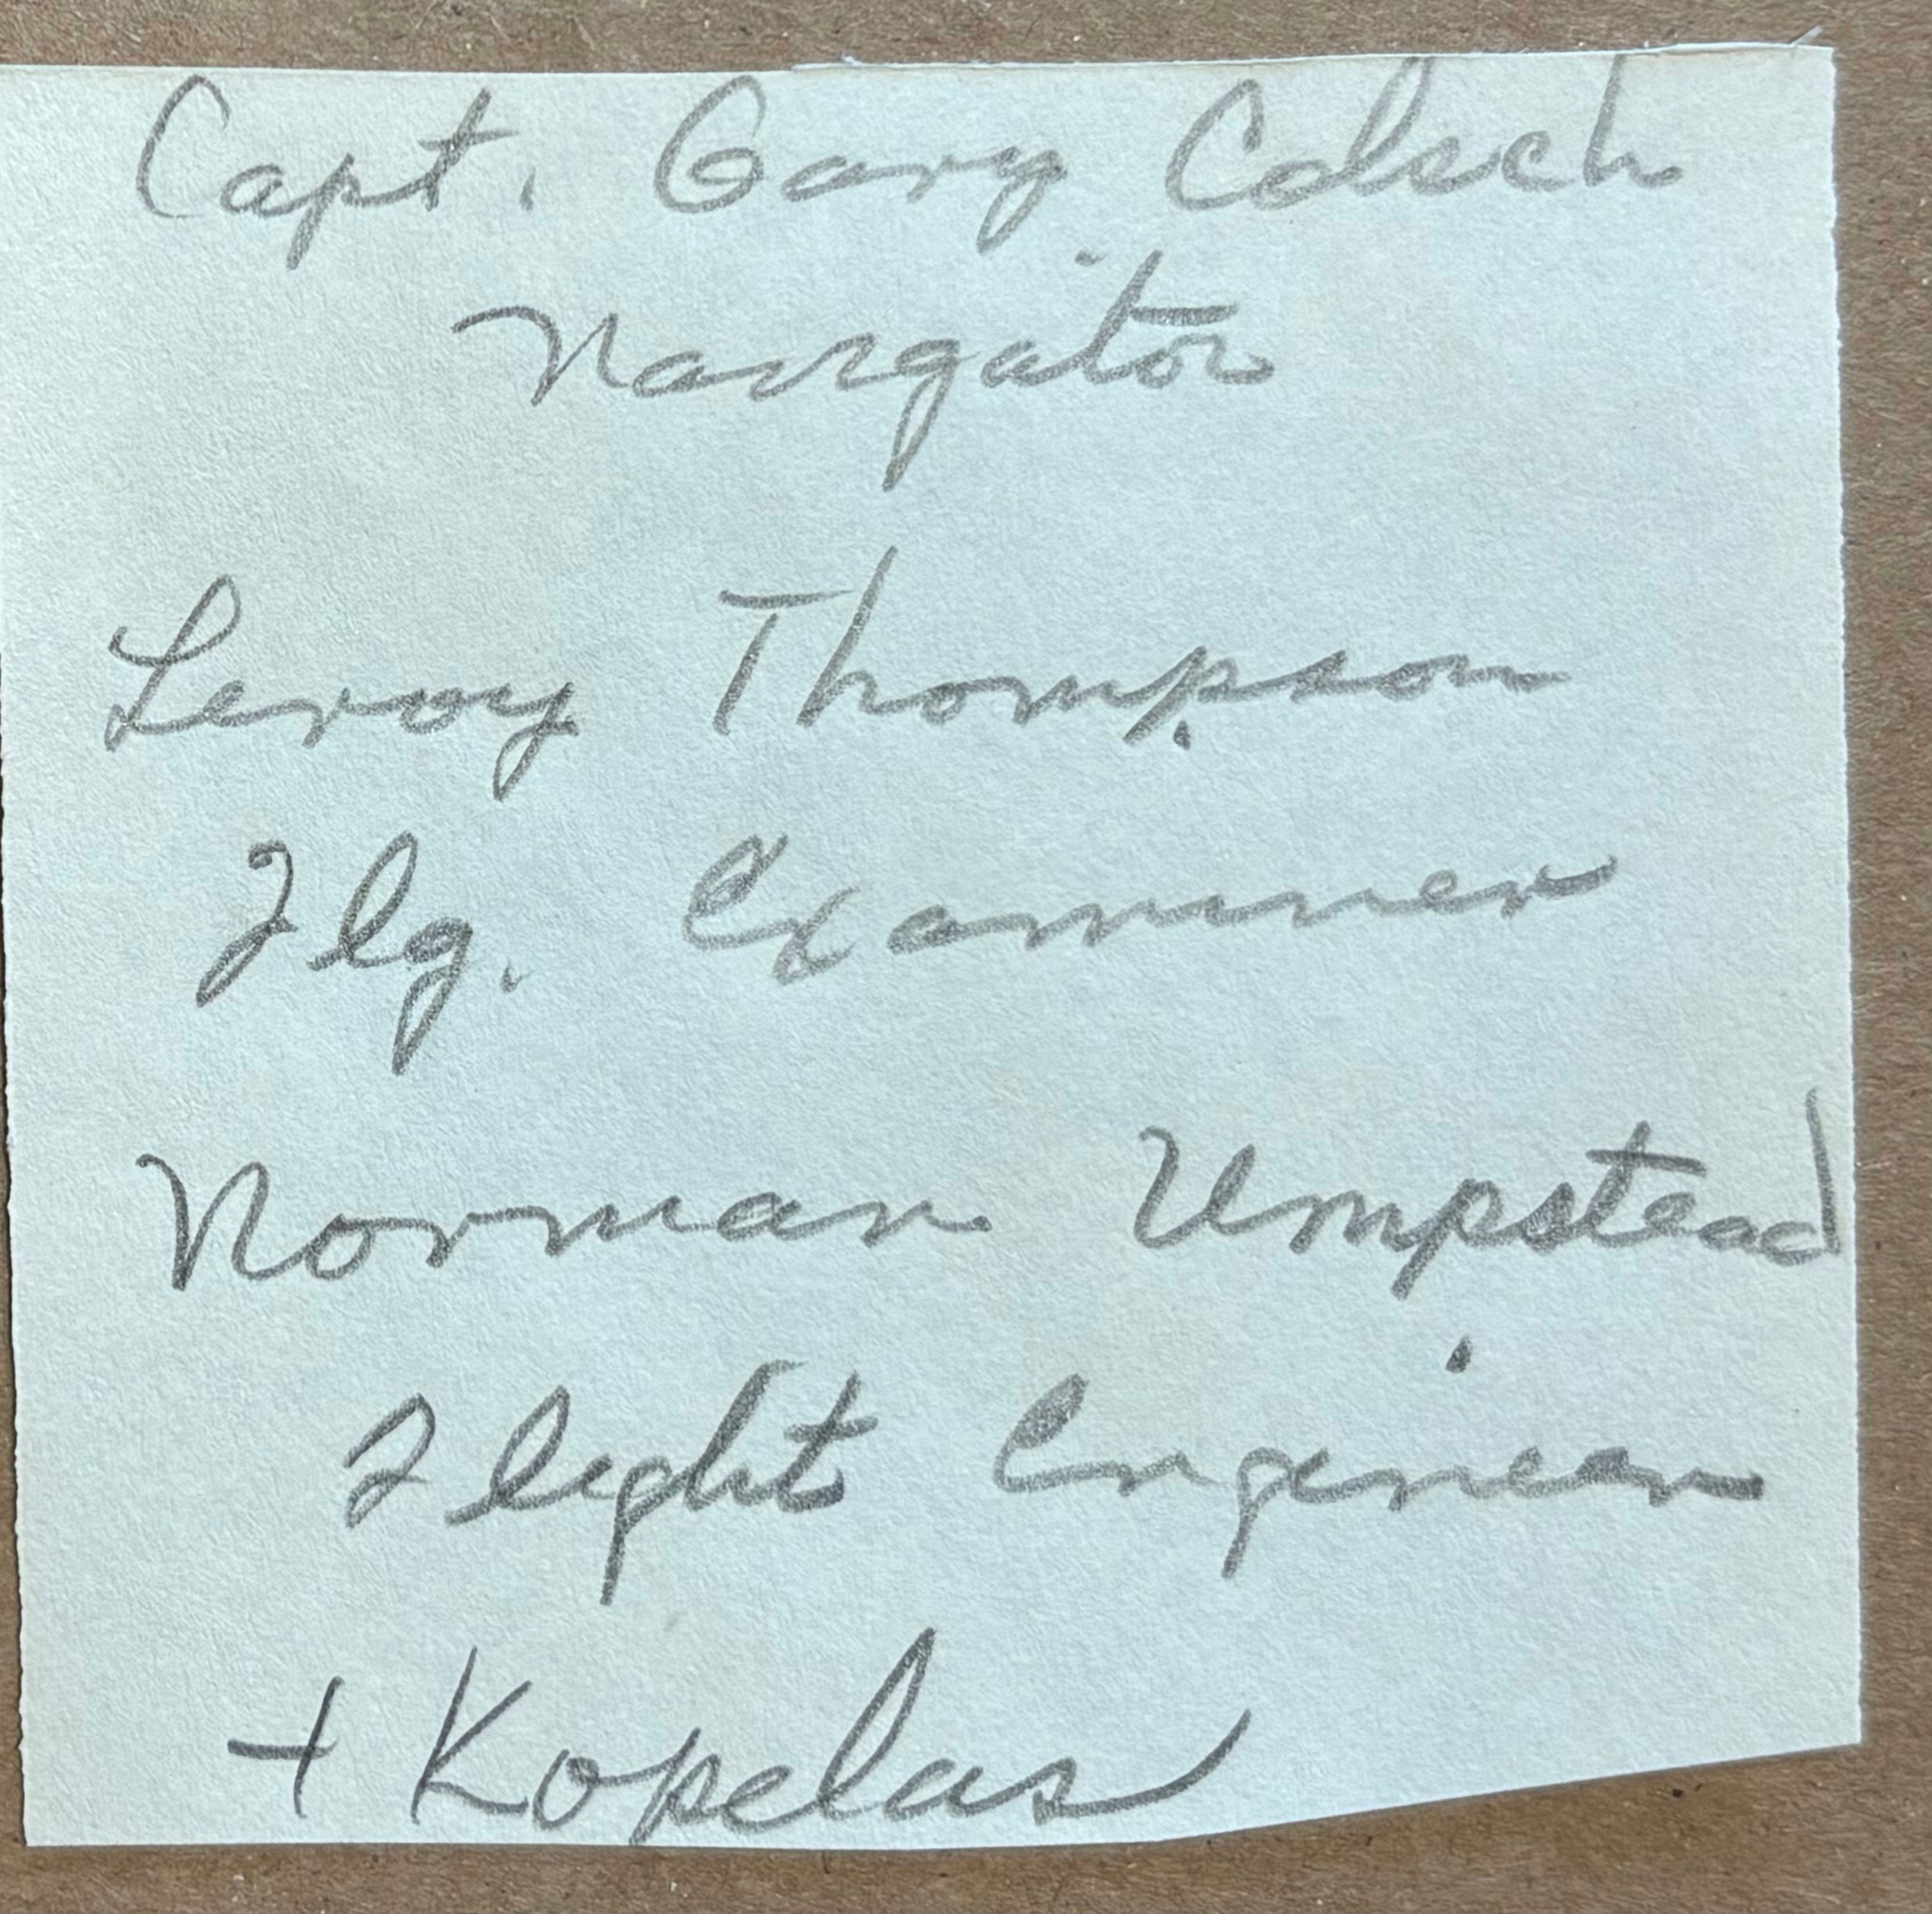 Capt. Gary Colsch
Navigator
Leroy Thompson
Flg. Examiner
Norman Umpstead
Flight Engineer
+ Kopelas